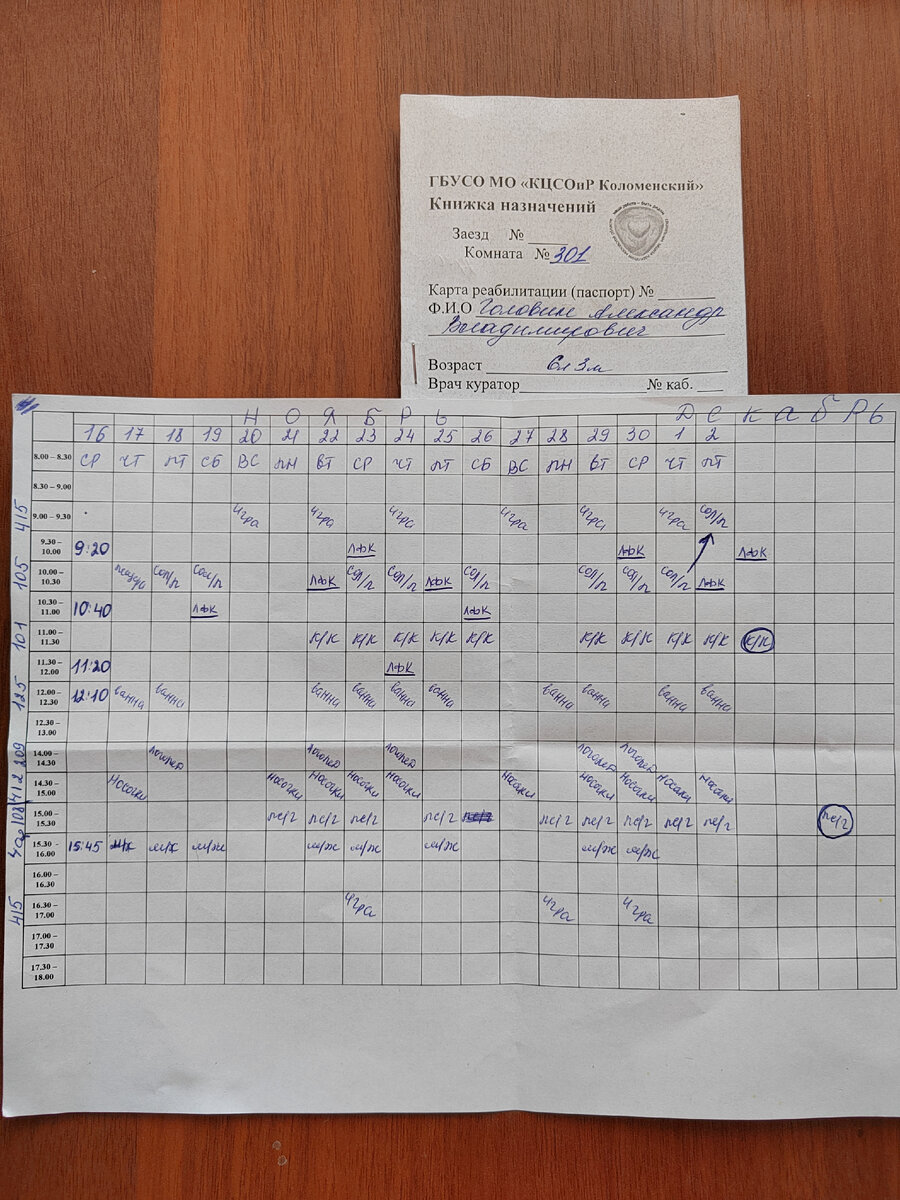 ГБУСО МО «КЦСОиР Коломенский»
Книжка назначений
Заезд №
Комната № 301
Карта реабилитации (паспорт) №
Ф.И.О Головин Александр
Владимирович
Возраст 6л 3м
Врач куратор № каб.
НОЯБРЬ ДЕКАБРЬ
16 17 18 19 20 21 22 23 24 25 26 27 28 29 30 1 2
8.00 – 8.30 СР ЧТ ПТ СБ ВС ПН ВТ СР ЧТ ПТ СБ ВС ПН ВТ СР ЧТ ПТ
8.30 – 9.00
415 9.00 – 9.30 Игра Игра Игра Игра Игра Игра сол/п
9.30 – 10.00 9:20 ЛФК ЛФК ЛФК
105 10.00 – 10.30 сол/п сол/п ЛФК сол/п сол/п ЛФК сол/п сол/п сол/п сол/п ЛФК
10.30 – 11.00 10:40 ЛФК ЛФК
101 11.00 – 11.30 К/К К/К К/К К/К К/К К/К К/К К/К К/К К/К
11.30 – 12.00 11:20 ЛФК
125 12.00 – 12.30 12:10 ванна ванна ванна ванна ванна ванна ванна ванна ванна ванна
12.30 – 13.00
209 14.00 – 14.30 логопед логопед логопед логопед логопед
412 14.30 – 15.00 Носочки носочки носочки носочки носочки носочки носочки носочки носочки носочки
108 15.00 – 15.30 пс/г пс/г пс/г пс/г пс/г пс/г пс/г пс/г пс/г пс/г
15.30 – 16.00 15:45 м/ж м/ж м/ж м/ж м/ж м/ж м/ж м/ж
16.00 – 16.30
415 16.30 – 17.00 Игра Игра Игра
17.00 – 17.30
17.30 – 18.00